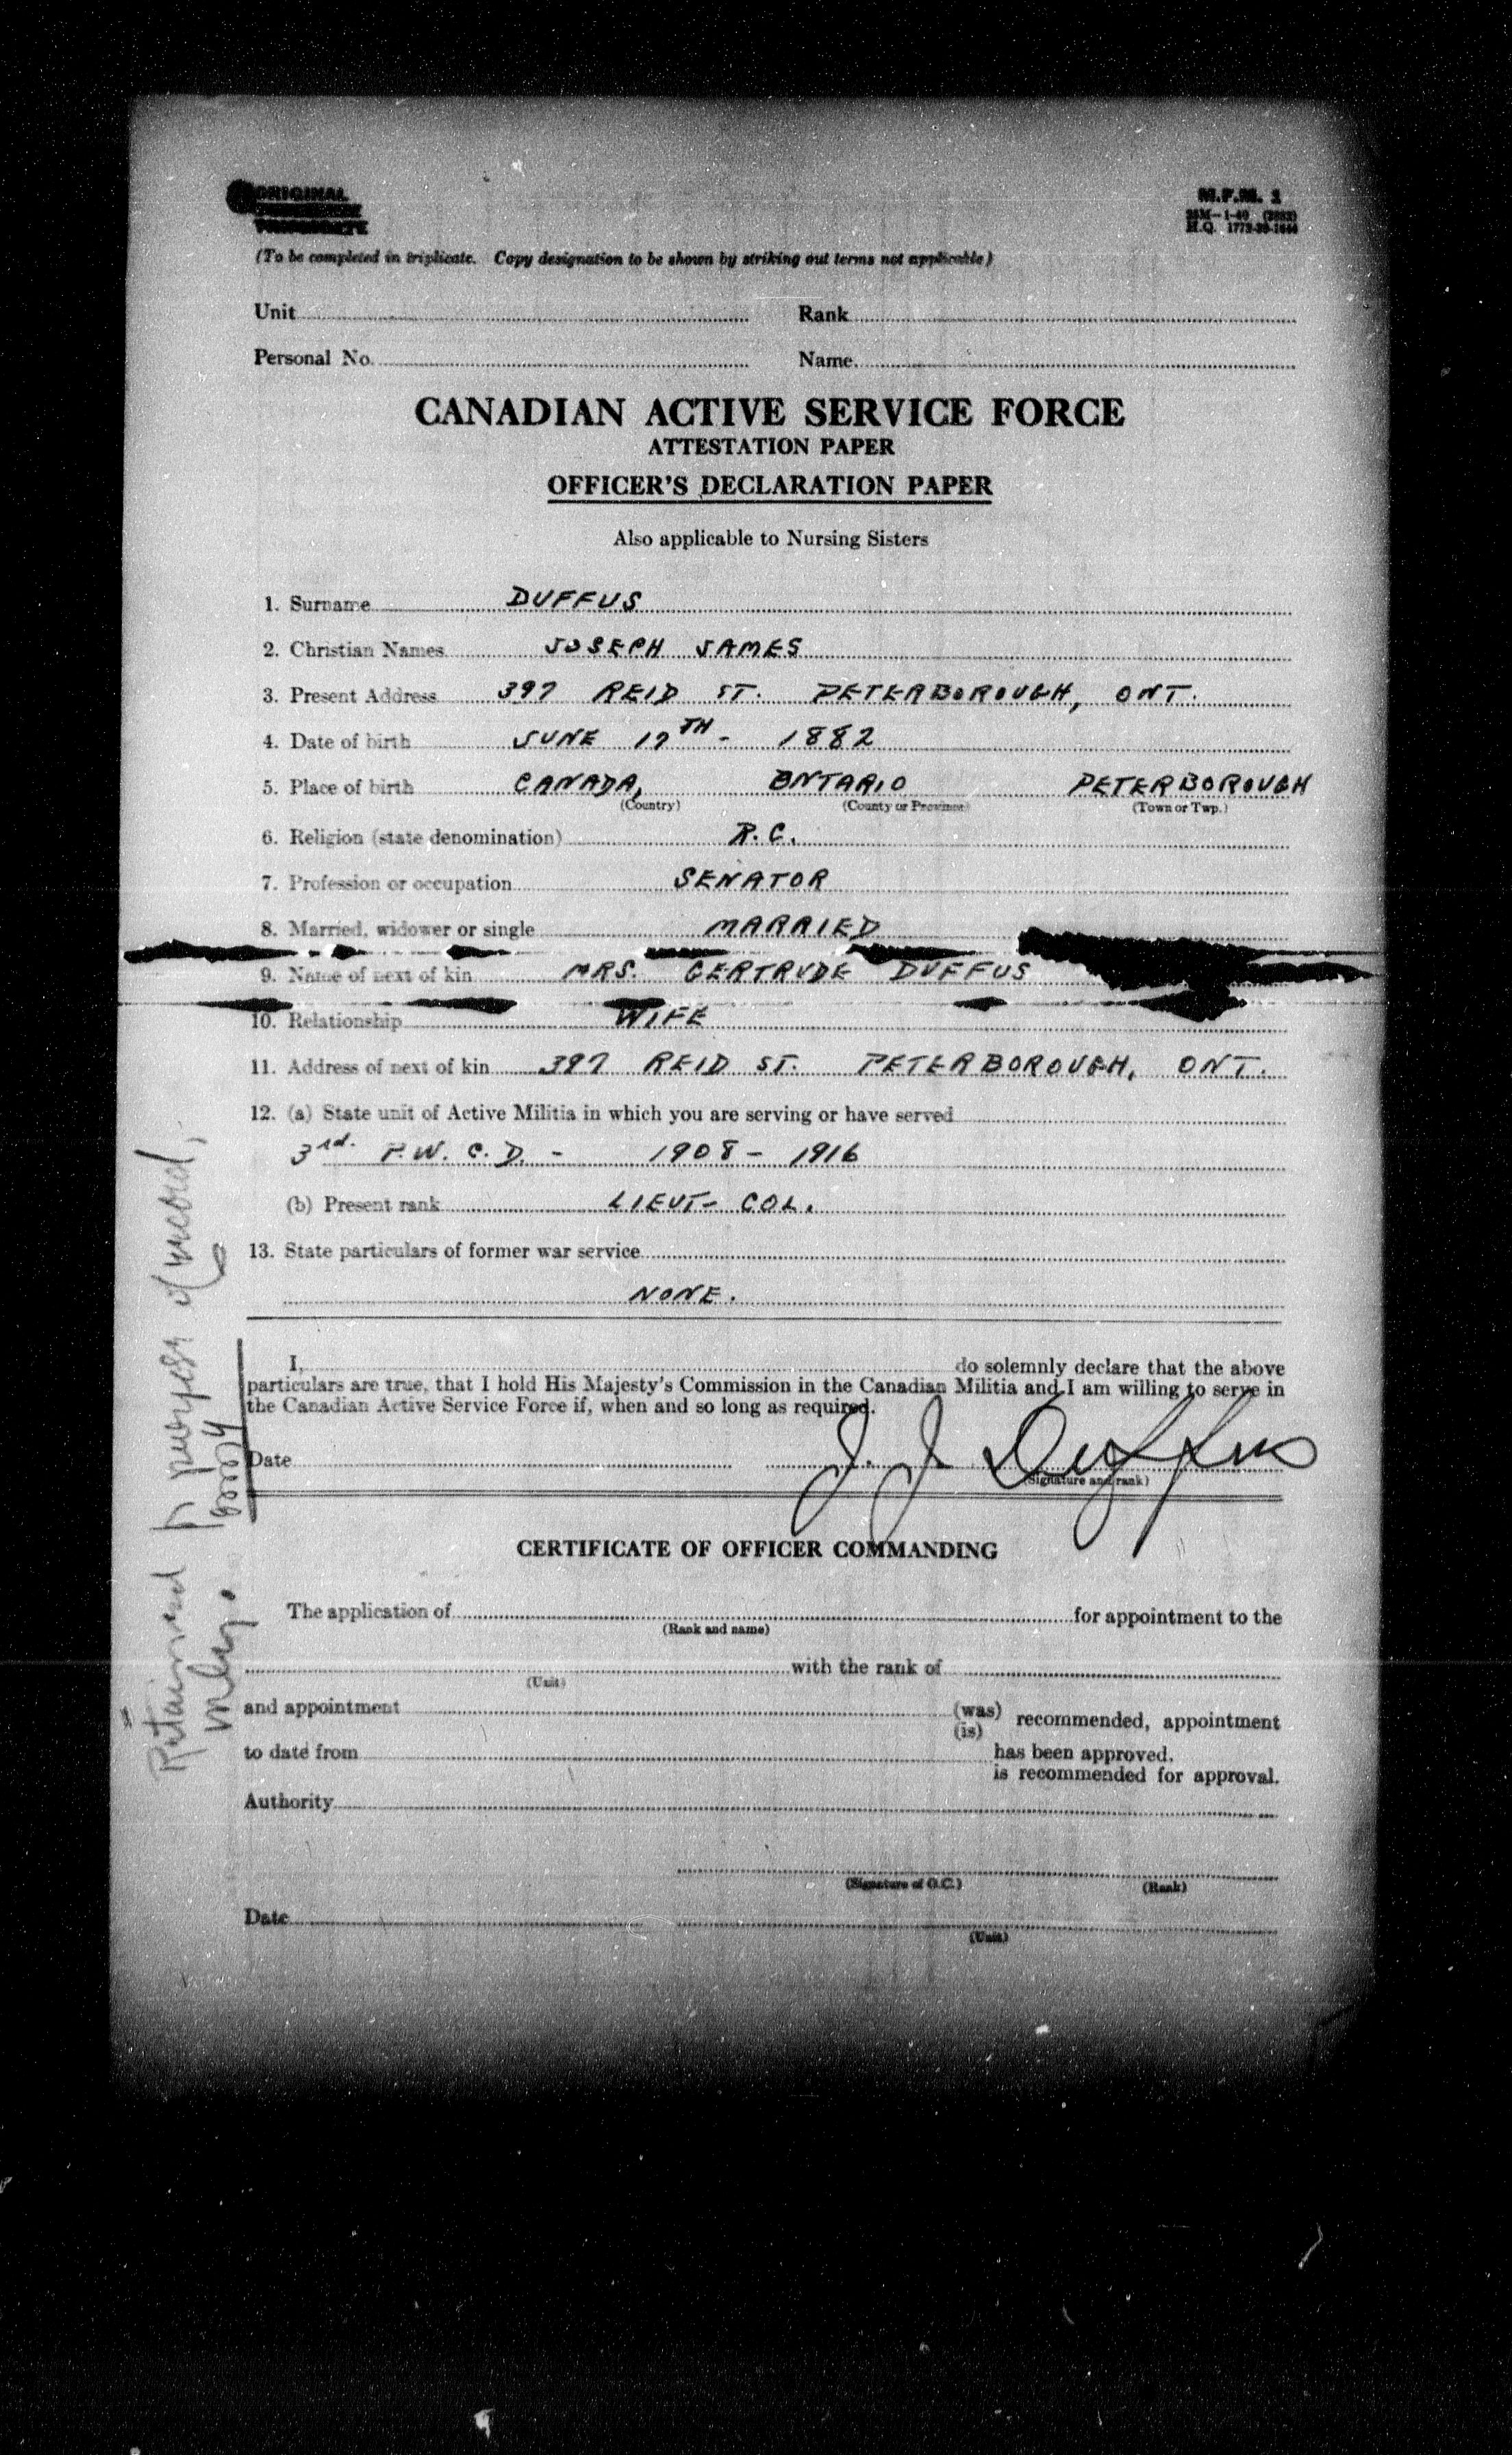 ORIGINAL
M.F.M. 1
(To be completed in triplicate. Copy designation to be shown by striking out terms not applicable)
Unit Rank
Personal No. Name
CANADIAN ACTIVE SERVICE FORCE
ATTESTATION PAPER
OFFICER'S DECLARATION PAPER
Also applicable to Nursing Sisters
1. Surname DUFFUS
2. Christian Names JOSEPH JAMES
3. Present Address 397 REID ST. PETERBOROUGH, ONT.
4. Date of birth JUNE 17TH - 1882
5. Place of birth CANADA, ONTARIO PETERBOROUGH
(Country) (County or Province) (Town or Twp.)
6. Religion (state denomination) R.C.
7. Profession or occupation SENATOR
8. Married, widower or single MARRIED
9. Name of next of kin MRS. GERTRUDE DUFFUS
10. Relationship WIFE
11. Address of next of kin 397 REID ST. PETERBOROUGH, ONT.
12. (a) State unit of Active Militia in which you are serving or have served
3rd. P.W.C.D. - 1908 - 1916
(b) Present rank LIEUT- COL.
13. State particulars of former war service
NONE.
I, do solemnly declare that the above
particulars are true, that I hold His Majesty's Commission in the Canadian Militia and I am willing to serve in
the Canadian Active Service Force if, when and so long as required.
Date J. J. Duffus
(Signature and rank)
CERTIFICATE OF OFFICER COMMANDING
The application of for appointment to the
(Rank and name)
with the rank of
(Unit)
and appointment (was) recommended, appointment
(is)
to date from has been approved.
is recommended for approval.
Authority
(Signature of O.C.) (Rank)
Date
(Unit)
Retained for purposes of record,
only